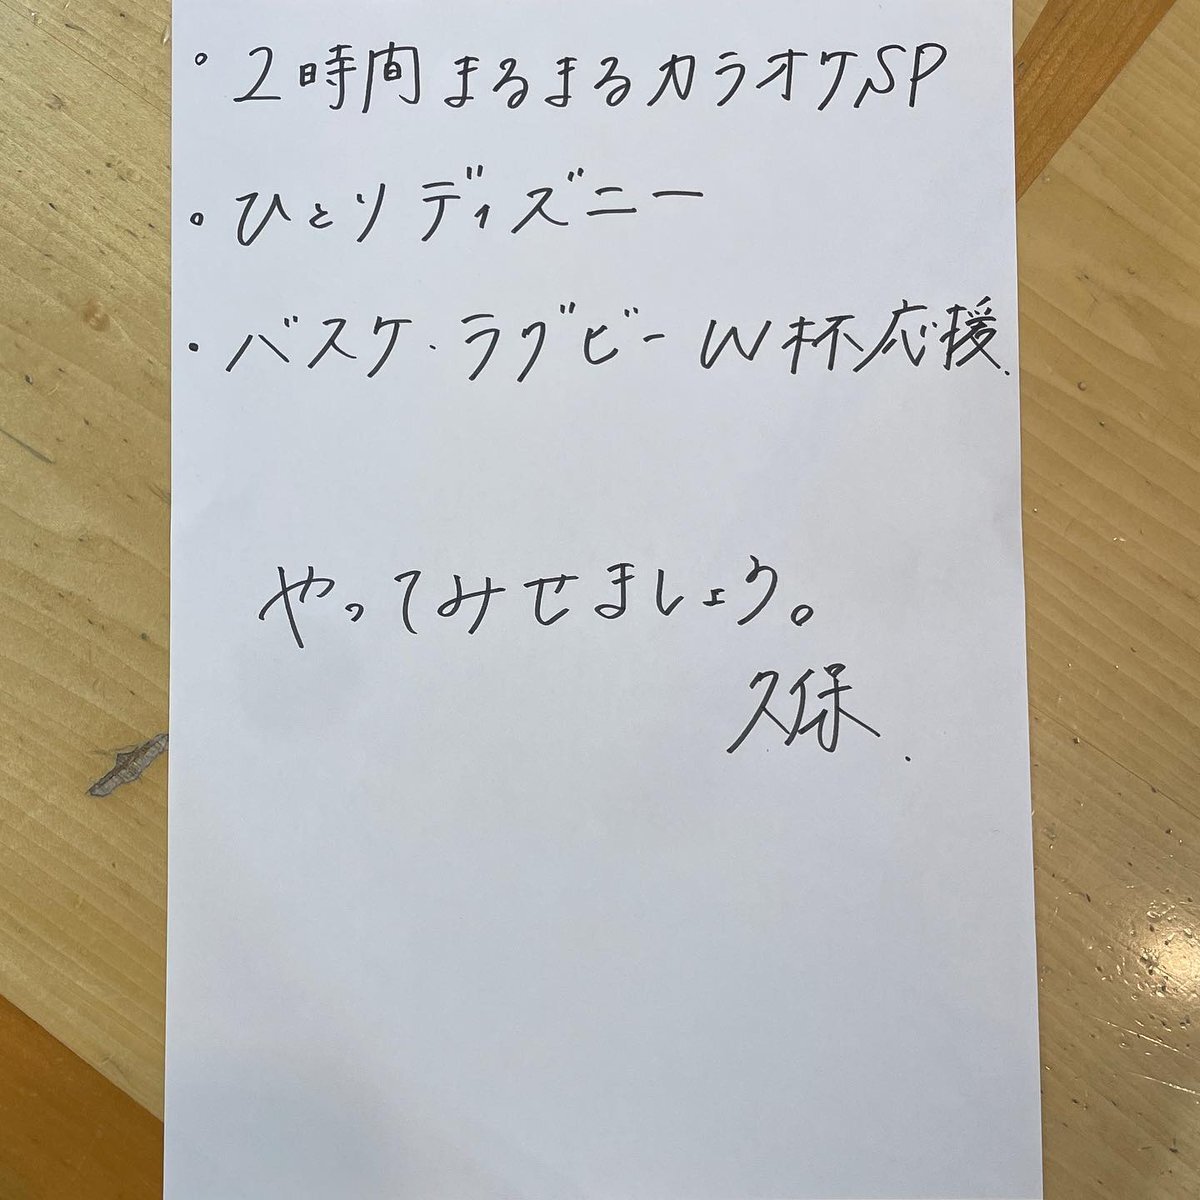 ・2時間まるまるカラオケSP
・ひとりディズニー
・バスケ・ラグビーW杯応援.
やってみせましょう。
久保.